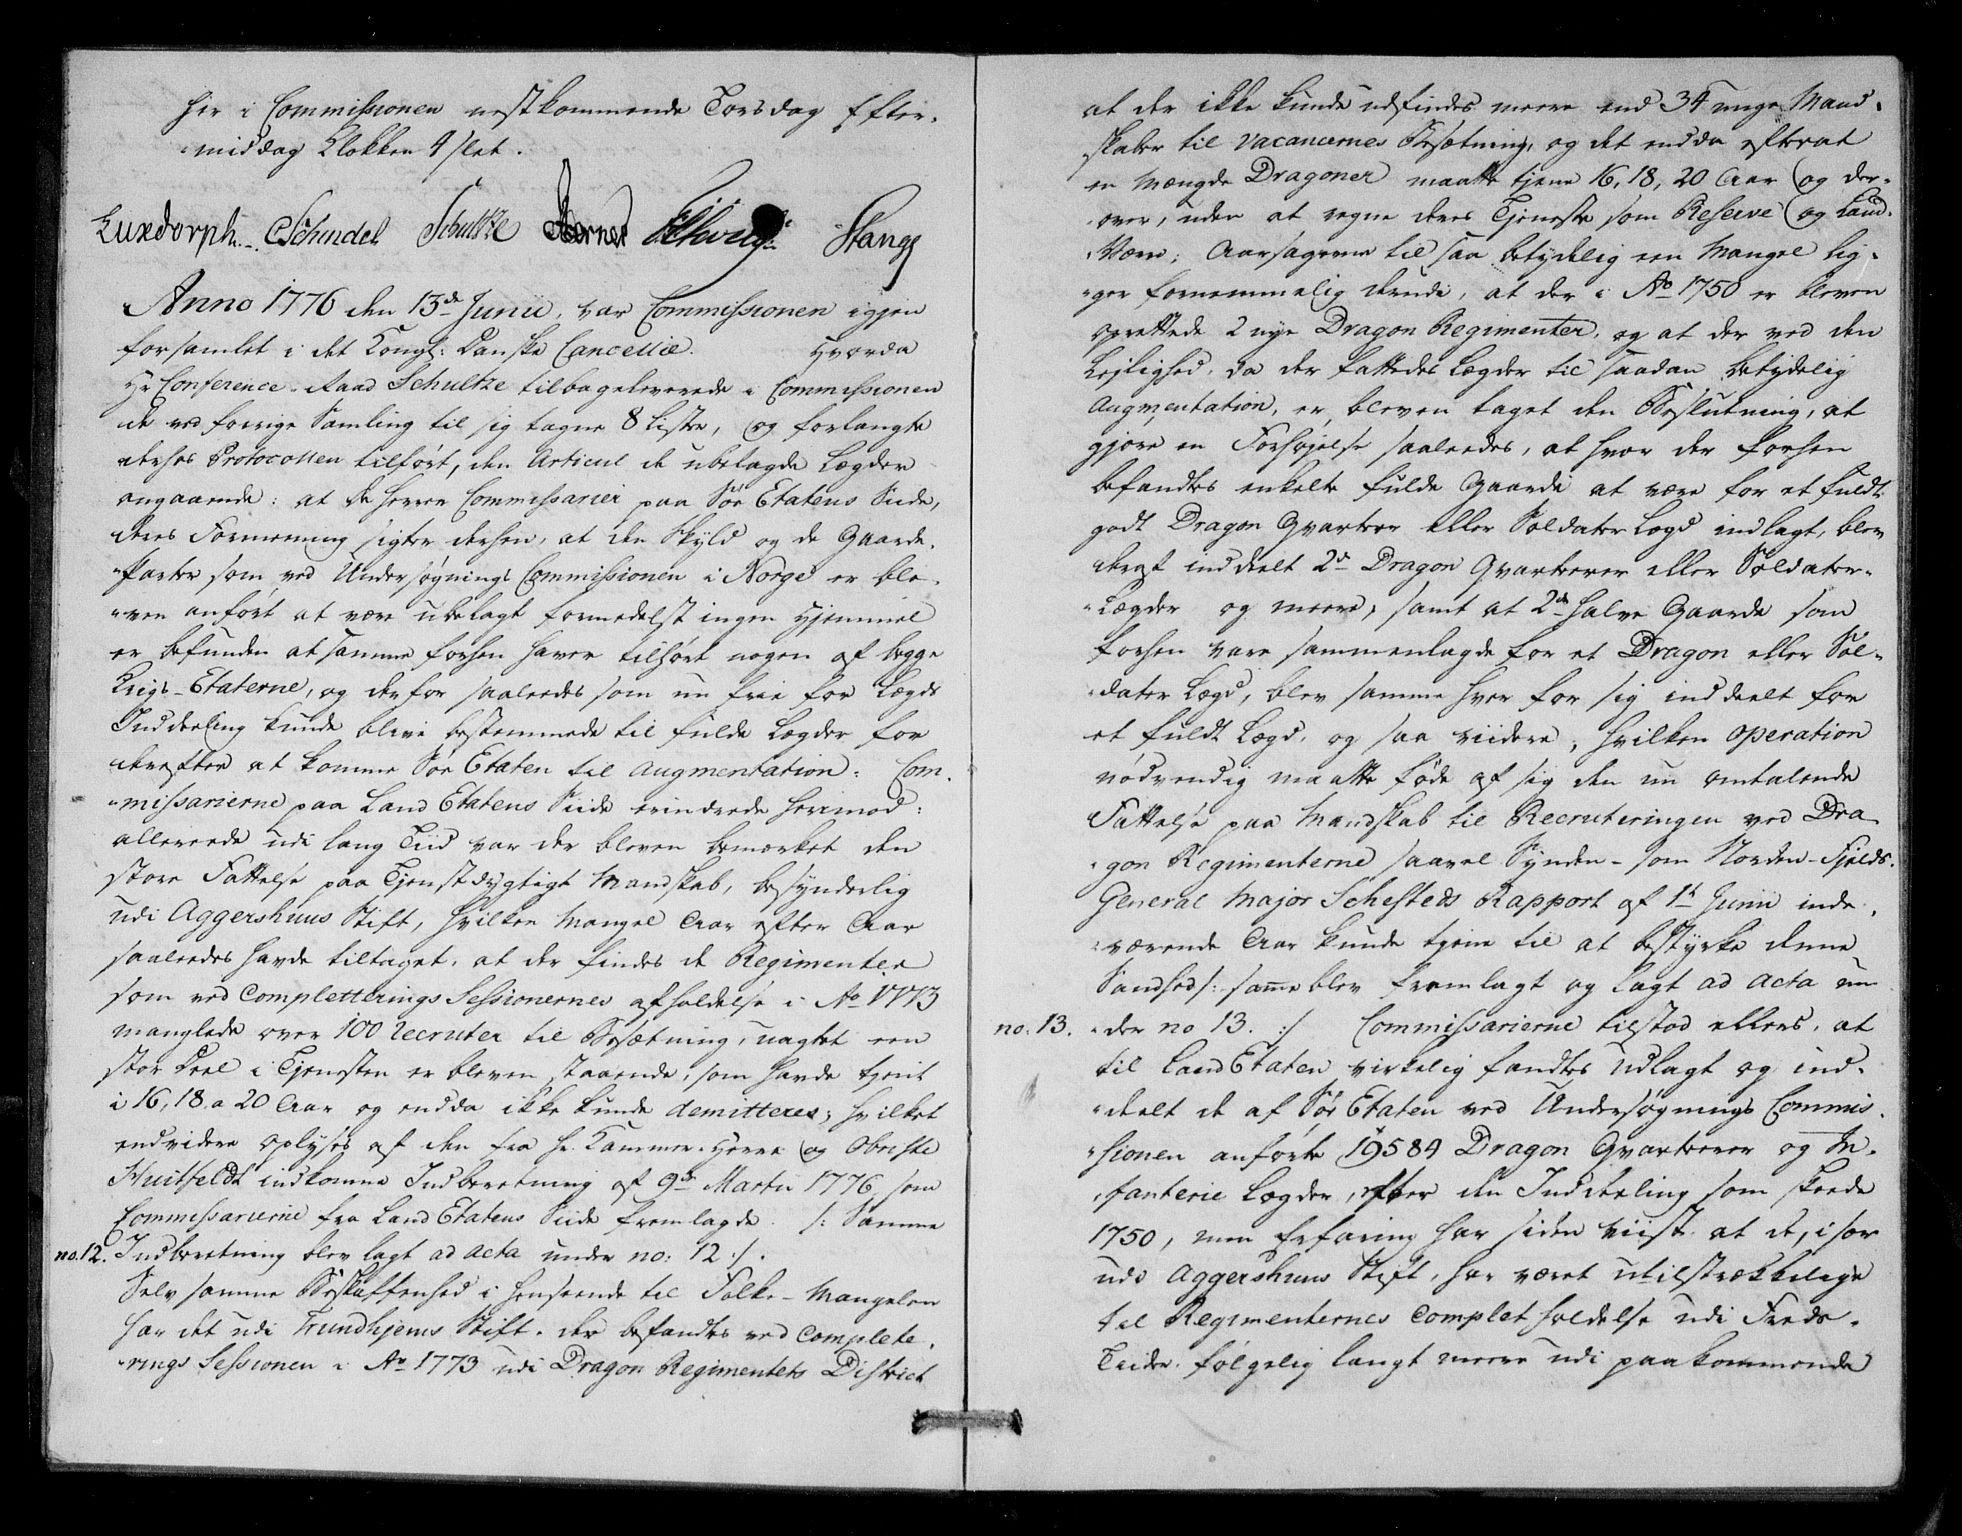 her i Commissionen nestkommende Torsdag Efter-
middag Klokken 4 slet.
Luxdorph. Schindel Schultze Stange
Anno 1776 den 13de Junii, var Commissionen igjen
forsamlet i det Kongl: Danske Cancellie. Hvorda
Hr Conference-Raad Schultze tilbageleverede i Commissionen
de ved forrige Samling til sig tagne 8 Lister, og forlangte
derhos Protocollen tilført, den Articul de ubelagde Lægder
angaaende: at de Herrer Commissarier paa Søe Etatens Siide,
deres Formening sigter derhen, at den Skyld og de Gaarde-
Parter som ved Undersøgnings Commissionen i Norge er ble-
ven anført at være ubelagt formedelst ingen Hjemmel
er befunden at samme forhen haver tilhørt nogen af begge
Krigs-Etaterne, og derfor saaledes som nu frie for Lægds
Inddeeling kunde blive bestemmede til fulde Lægder for
derefter at komme Søe Etaten til Augmentation: Com-
missarierne paa Land Etatens Siide erindrede herimod:
allereede udi lang Tiid var der bleven bemærket den
store Fattelse paa Tjenstdygtigt Mandskab, besynderlig
udi Aggershuus Stift, hvilken Mangel Aar efter Aar
saaledes havde tiltaget, at der findes de Regimenter
som ved Completterings Sessionernes afholdelse i Ao 1773
manglede over 100 recruter til Besætning, uagtet een
stor Deel i Tjensten er bleven staaende, som havde tjent
i 16, 18 a 20 Aar og endda ikke kunde demitteres; hvilket
endvidere oplyses af den fra Hr. Kammer-Herre og Obriste
Huitfeldt indkomne Indberetning af 9de Martii 1776, som
Commissarierne fra Land Etatens Siide fremlagde. /: Samme
no. 12. Indberetning blev lagt ad acta under no: 12 :/.
Selv samme Beskaffenhed i henseende til Folke-Mangelen
har det udi Trundhjems Stift, der befandtes ved Complete-
rings Sessionen i Ao 1773 udi Dragon Regimentets District
at der ikke kunde udfindes meere end 34 unge Mand-
skaber til Vacancernes Besætning, og det endda efterat
en Mængde Dragoner maatte tjene 16, 18, 20 Aar og der-
over, uden at regne deres Tjeneste som Reserve og Land-
Værn; Aarsagerne til saa betydelig een Mangel lig-
ger fornemmelig derudi, at der i Ao 1750 er bleven
oprettede 2 nye Dragon Regimenter, og at der ved den
Lejlighed, da der fattedes Lægder til saadan betydelig
Augmentation, er bleven taget den Beslutning, at
gjøre en Forhøjelse saaledes, at hvor der forhen
befandtes enkelte fulde Gaarde at være for et fuldt
godt Dragon Qvarteer eller Soldater Lægd indlagt, blev
deraf inddeelt 2de Dragon Qvarterer eller Soldater-
Lægder og meere, samt at 2de halve Gaarde som
forhen vare sammenlagde for et Dragon eller Sol-
dater Lægd, blev samme hver for sig inddeelt for
et fuldt Lægd, og saa viidere, hvilken Operation
nødvendig maatte føde af sig den nu omtalende
Fattelse paa Mandskab til Recruteringen ved Dra-
gon Regimenterne saavel Synden- som Norden-Fjelds.
General Major Schesteds Rapport af 1ste Junii inde-
værende Aar kunde tjene til at bestyrke denne
Sandhed /: samme blev fremlagt og lagt ad acta un-
no. 13. der no 13. :/ Commissarierne tilstod ellers, at
til Land Etaten virkelig fandtes udlagt og ind-
deelt de af Søe Etaten ved Undersøgnings Commis-
sionen anførte 19584 Dragon Qvarterer og In-
fanterie Lægder, efter den Inddeeling som skeede
1750, men Erfaring har siden viist at de, især
udi Aggershuus Stift, har været utilstrækkelige
til Regimenternes Complet holdelse udi Freds-
Tider, følgelig langt meere udi paakommende